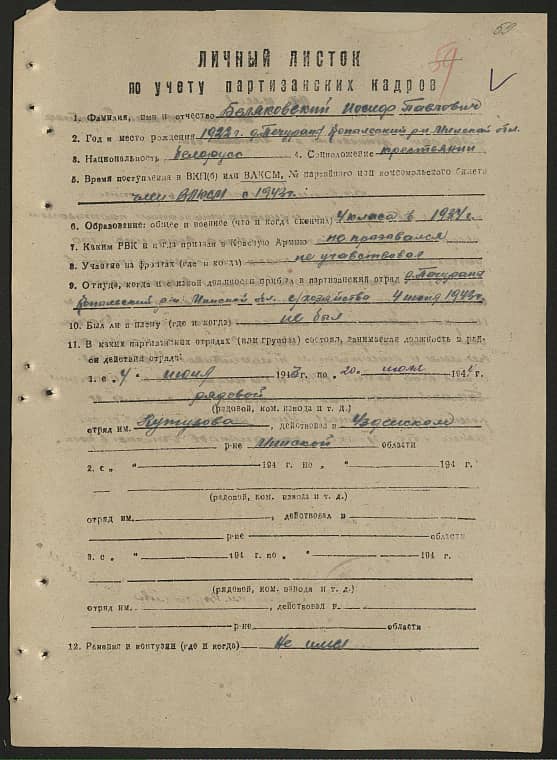 59
54
ЛИЧНЫЙ ЛИСТОК
по учету партизанских кадров
1. Фамилия, имя и отчество Беляковский Иосиф Павлович
2. Год и место рождения 1922 г. д. Копыльский р-н Минской обл.
3. Национальность белорусс 4. Соцположение крестьянин
5. Время поступления в ВКП(б) или ВЛКСМ, № партийного или комсомольского билета
член ВЛКСМ с 1943 г.
6. Образование: общее и военное (что и когда окончил) 4 класа в г.
7. Каким РВК и когда призван в Красную Армию не призавался
8. Участие на фронтах (где и когда) не учавствовал
9. Откуда, когда и с какой должности прибыл в партизанский отряд д.
Копыльский р-н. Минской обл. с/хозяйства 4 июня 1943 г.
10. Был ли в плену (где и когда) не был
11. В каких партизанских отрядах (или группах) состоял, занимаемая должность и рай-
он действий отряда:
1. с „ 4 " июня 1943 г. по „ 20 " июля 1944 г.
рядовой
(рядовой, ком. взвода и т. д.)
отряд им. Кутузова, действовал в Узденском
р-не Минской области
2. с „ " 194 г. по „ " 194 г.
(рядовой, ком. взвода и т. д.)
отряд им. , действовал в
р-не области
3. с „ " 194 г. по „ " 194 г.
(рядовой, ком. взвода и т. д.)
отряд им. , действовал в
р-не области
12. Ранения и контузии (где и когда) Не имел